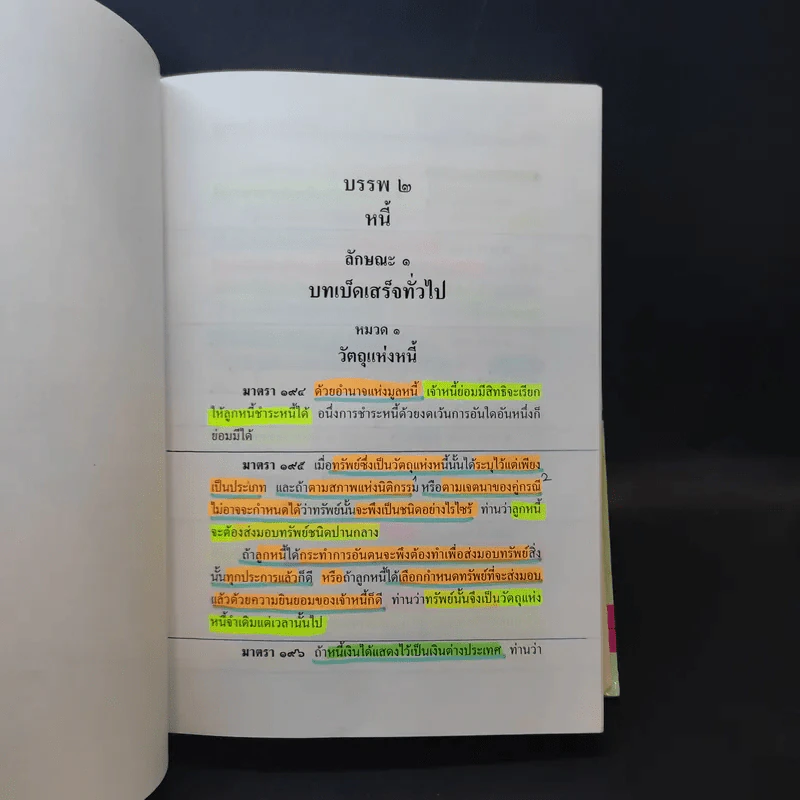 บรรพ ๒
หนี้
ลักษณะ ๑
บทเบ็ดเสร็จทั่วไป
หมวด ๑
วัตถุแห่งหนี้
มาตรา ๑๙๔ ด้วยอำนาจแห่งมูลหนี้ เจ้าหนี้ย่อมมีสิทธิจะเรียก
ให้ลูกหนี้ชำระหนี้ได้ อนึ่งการชำระหนี้ด้วยงดเว้นการอันใดอันหนึ่งก็
ย่อมมีได้
มาตรา ๑๙๕ เมื่อทรัพย์ซึ่งเป็นวัตถุแห่งหนี้นั้นได้ระบุไว้แต่เพียง
เป็นประเภท และถ้าตามสภาพแห่งนิติกรรม1 หรือตามเจตนาของคู่กรณี2
ไม่อาจจะกำหนดได้ว่าทรัพย์นั้นจะพึงเป็นชนิดอย่างไรไซร้ ท่านว่าลูกหนี้
จะต้องส่งมอบทรัพย์ชนิดปานกลาง
ถ้าลูกหนี้ได้กระทำการอันตนจะพึงต้องทำเพื่อส่งมอบทรัพย์สิ่ง
นั้นทุกประการแล้วก็ดี หรือถ้าลูกหนี้ได้เลือกกำหนดทรัพย์ที่จะส่งมอบ
แล้วด้วยความยินยอมของเจ้าหนี้ก็ดี ท่านว่าทรัพย์นั้นจึงเป็นวัตถุแห่ง
หนี้จำเดิมแต่เวลานั้นไป
มาตรา ๑๙๖ ถ้าหนี้เงินได้แสดงไว้เป็นเงินต่างประเทศ ท่านว่า